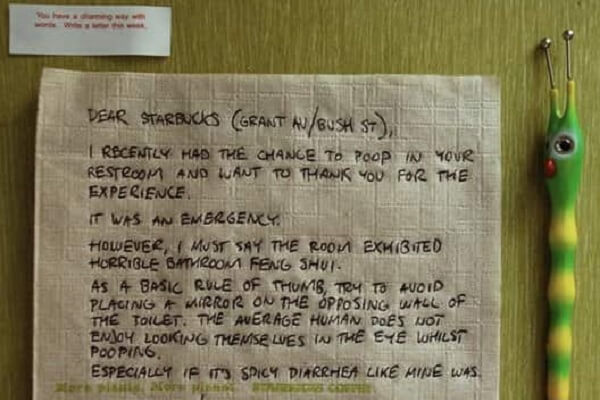 You have a charming way with
words. Write a letter this week.
DEAR STARBUCKS (GRANT AV/BUSH ST),
I RECENTLY HAD THE CHANCE TO POOP IN YOUR
RESTROOM AND WANT TO THANK YOU FOR THE
EXPERIENCE.
IT WAS AN EMERGENCY.
HOWEVER, I MUST SAY THE ROOM EXHIBITED
HORRIBLE BATHROOM FENG SHUI.
AS A BASIC RULE OF THUMB, TRY TO AVOID
PLACING A MIRROR ON THE OPPOSING WALL OF
THE TOILET. THE AVERAGE HUMAN DOES NOT
ENJOY LOOKING THEMSELVES IN THE EYE WHILST
POOPING.
ESPECIALLY IF IT'S SPICY DIARRHEA LIKE MINE WAS.
More plants. More planet. STARBUCKS COFFEE